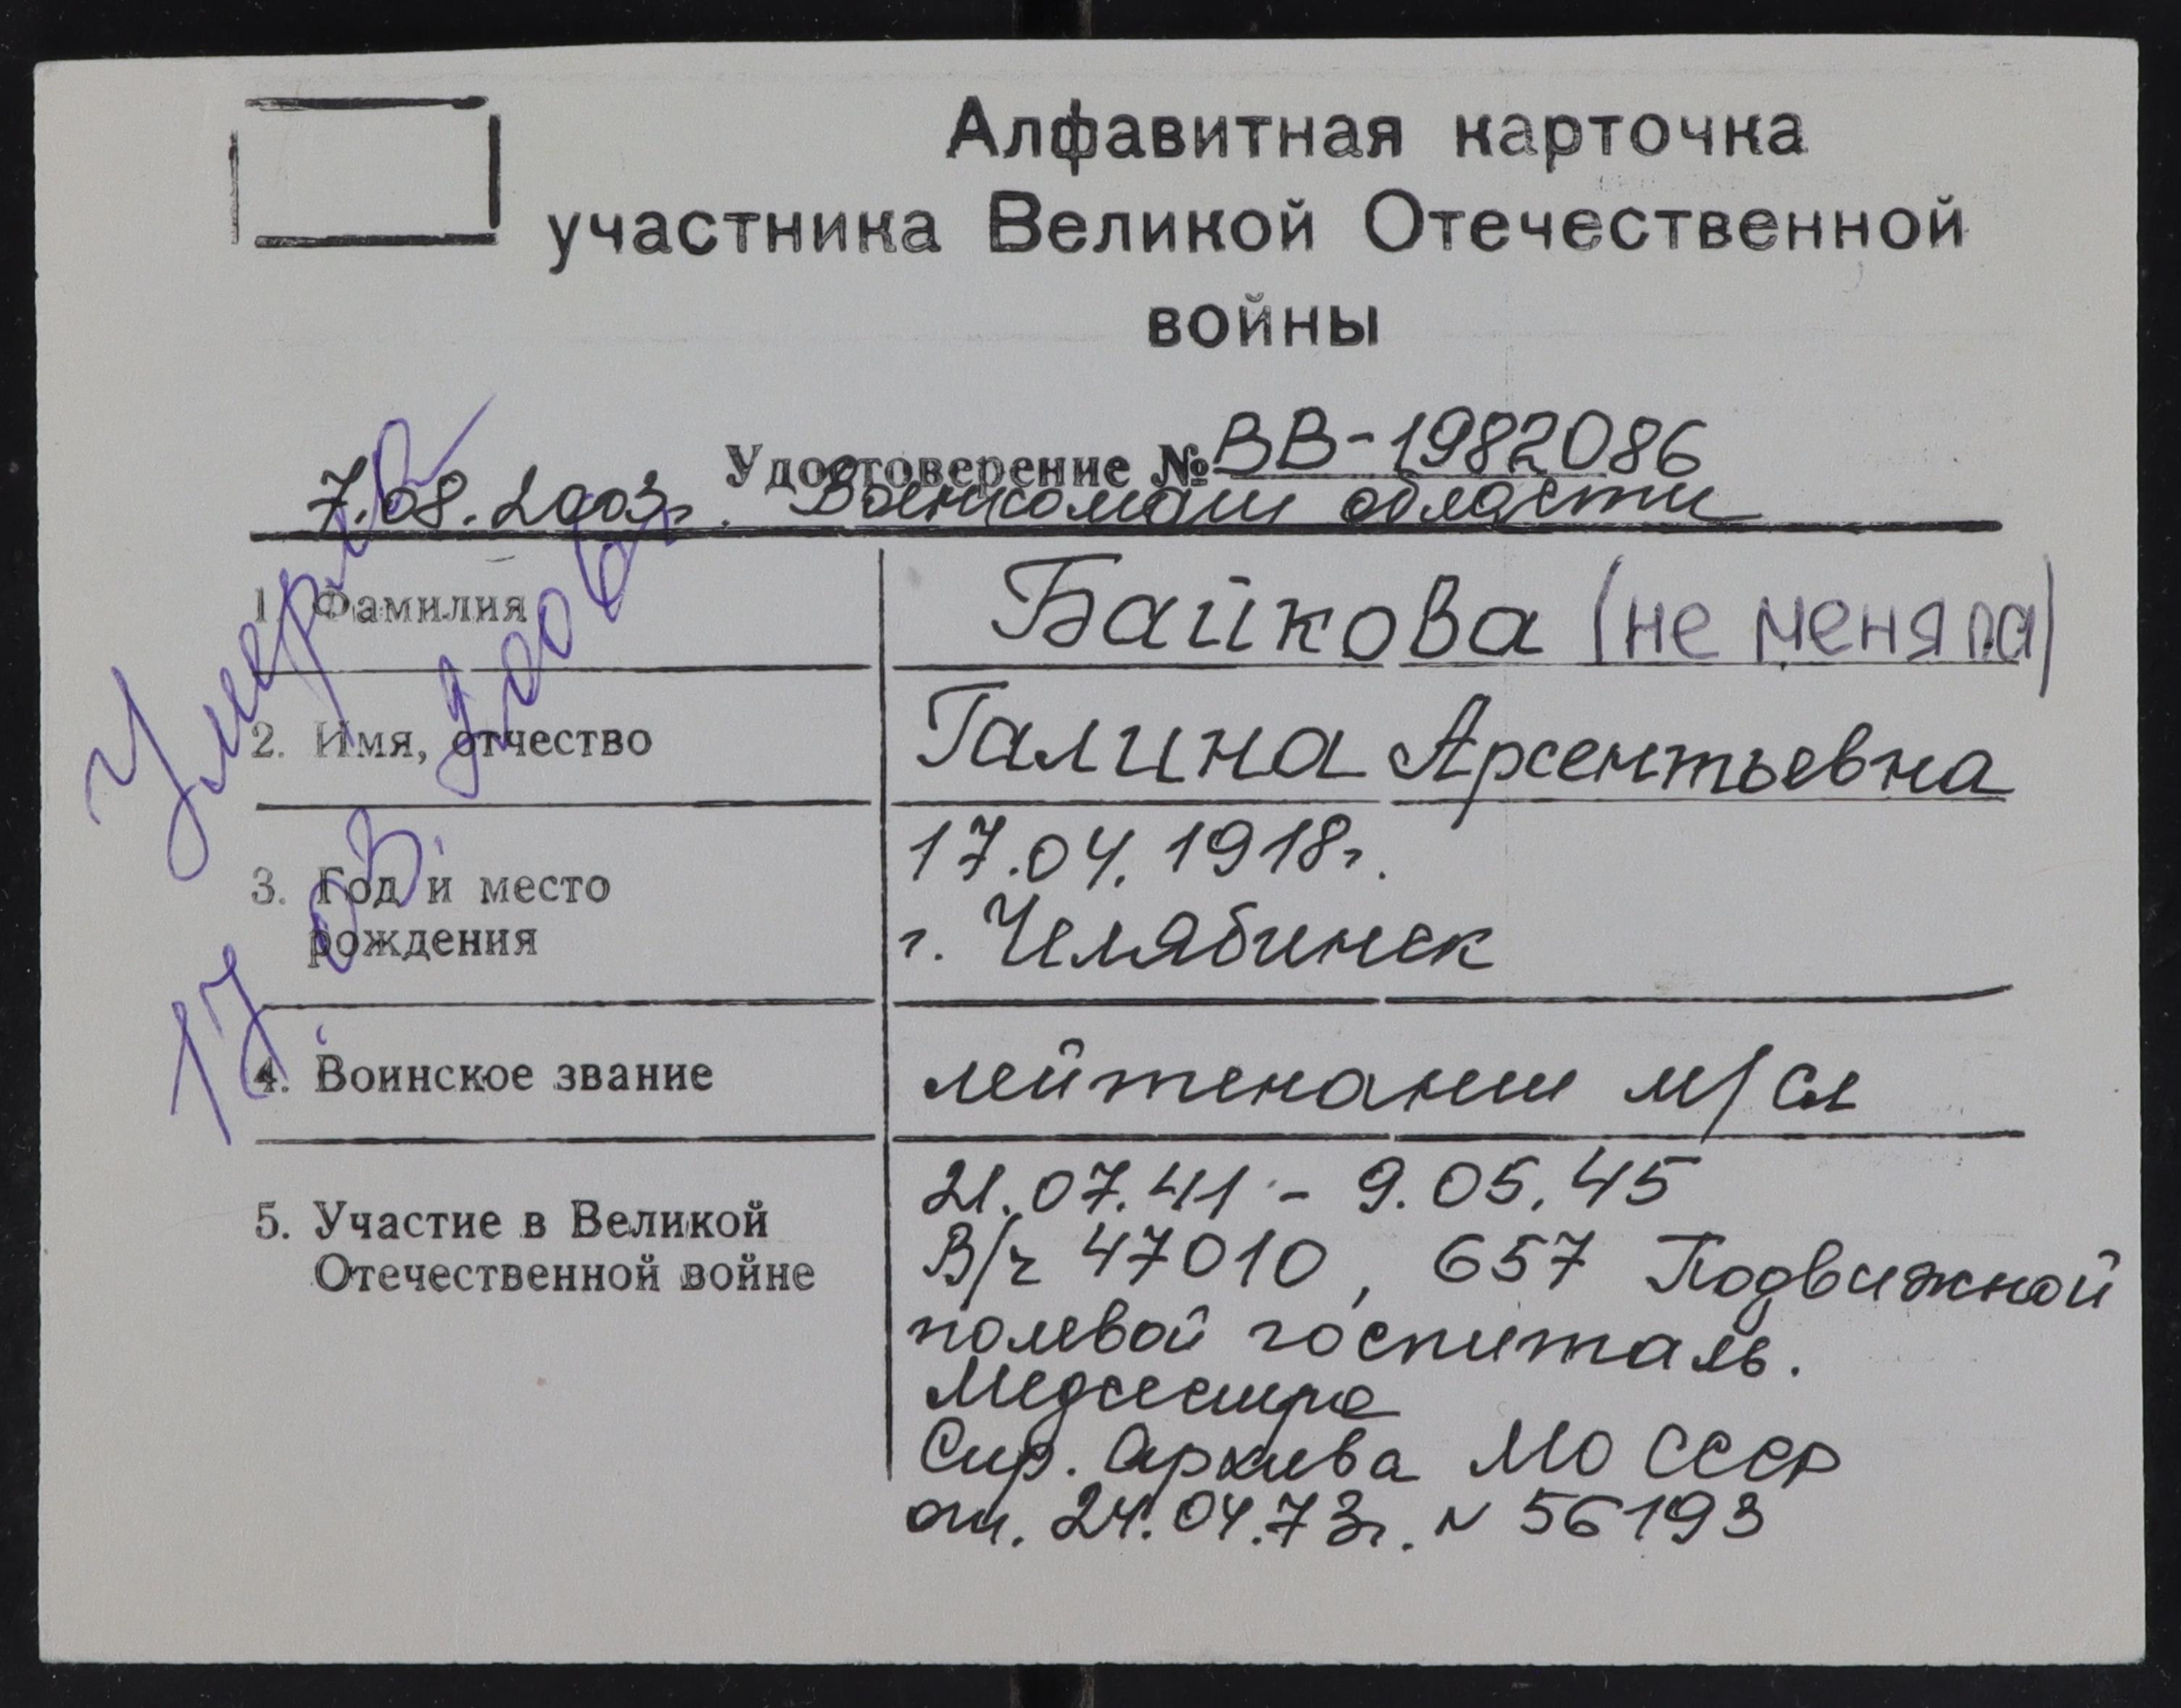 Алфавитная карточка
участника Великой Отечественной
войны
Удостоверение № ВВ-1982086
7.08.2003г. Военкомат области
1. Фамилия
Байкова (не меняла)
2. Имя, отчество
Галина Арсентьевна
3. Год и место
рождения
17.04.1918г.
г. Челябинск
4. Воинское звание
лейтенант м/сл
5. Участие в Великой
Отечественной войне
21.07.41 - 9.05.45
В/ч 47010, 657 Подвижной
полевой госпиталь.
Медсестра
Спр. Архива МО СССР
от. 24.04.73г. N 56193
Умерла
17.03.2006г